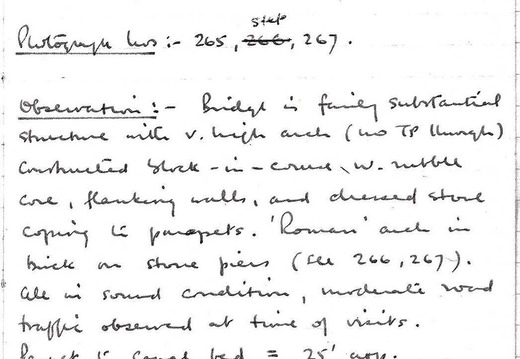 stet
Photograph Nos :- 265, 266, 267.
Observation :- Bridge is fairly substantial
structure with v. high arch (no TP through)
constructed block-in-course, w. rubble
core, flanking walls, and dressed stone
coping to parapets. 'Roman' arch in
brick on stone piers (see 266, 267).
All in sound condition, moderate road
traffic observed at time of visits.
to canal bed = 25' app.